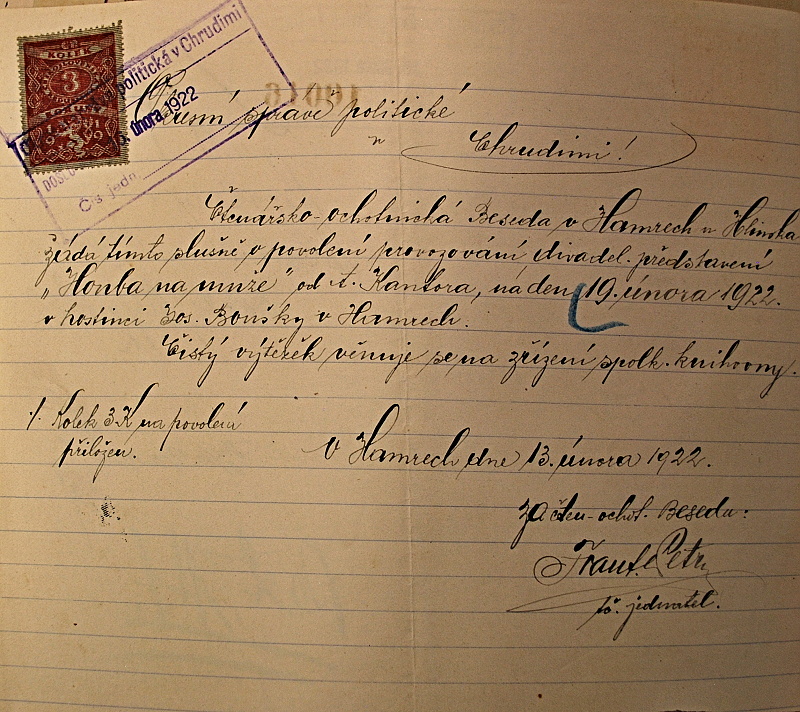 KOLEK
3
1919
politická v Chrudimi
února 1922
Čís. jedn.
Ctěné správě politické
v
Chrudimi!
Čtenářsko-ochotnická Beseda v Hamrech u Hlinska
žádá tímto slušně o povolení provozování divadel. představení
„Honba na muže" od A. Kantora, na den 19. února 1922.
v hostinci Jos. Boušky v Hamrech.
Čistý výtěžek věnuje se na zřízení spolk. knihovny.
1/. Kolek 3 K na povolení
přiložen.
V Hamrech dne 13. února 1922.
za čten-ochot. Besedu:
Frant. Petr
tč. jednatel.